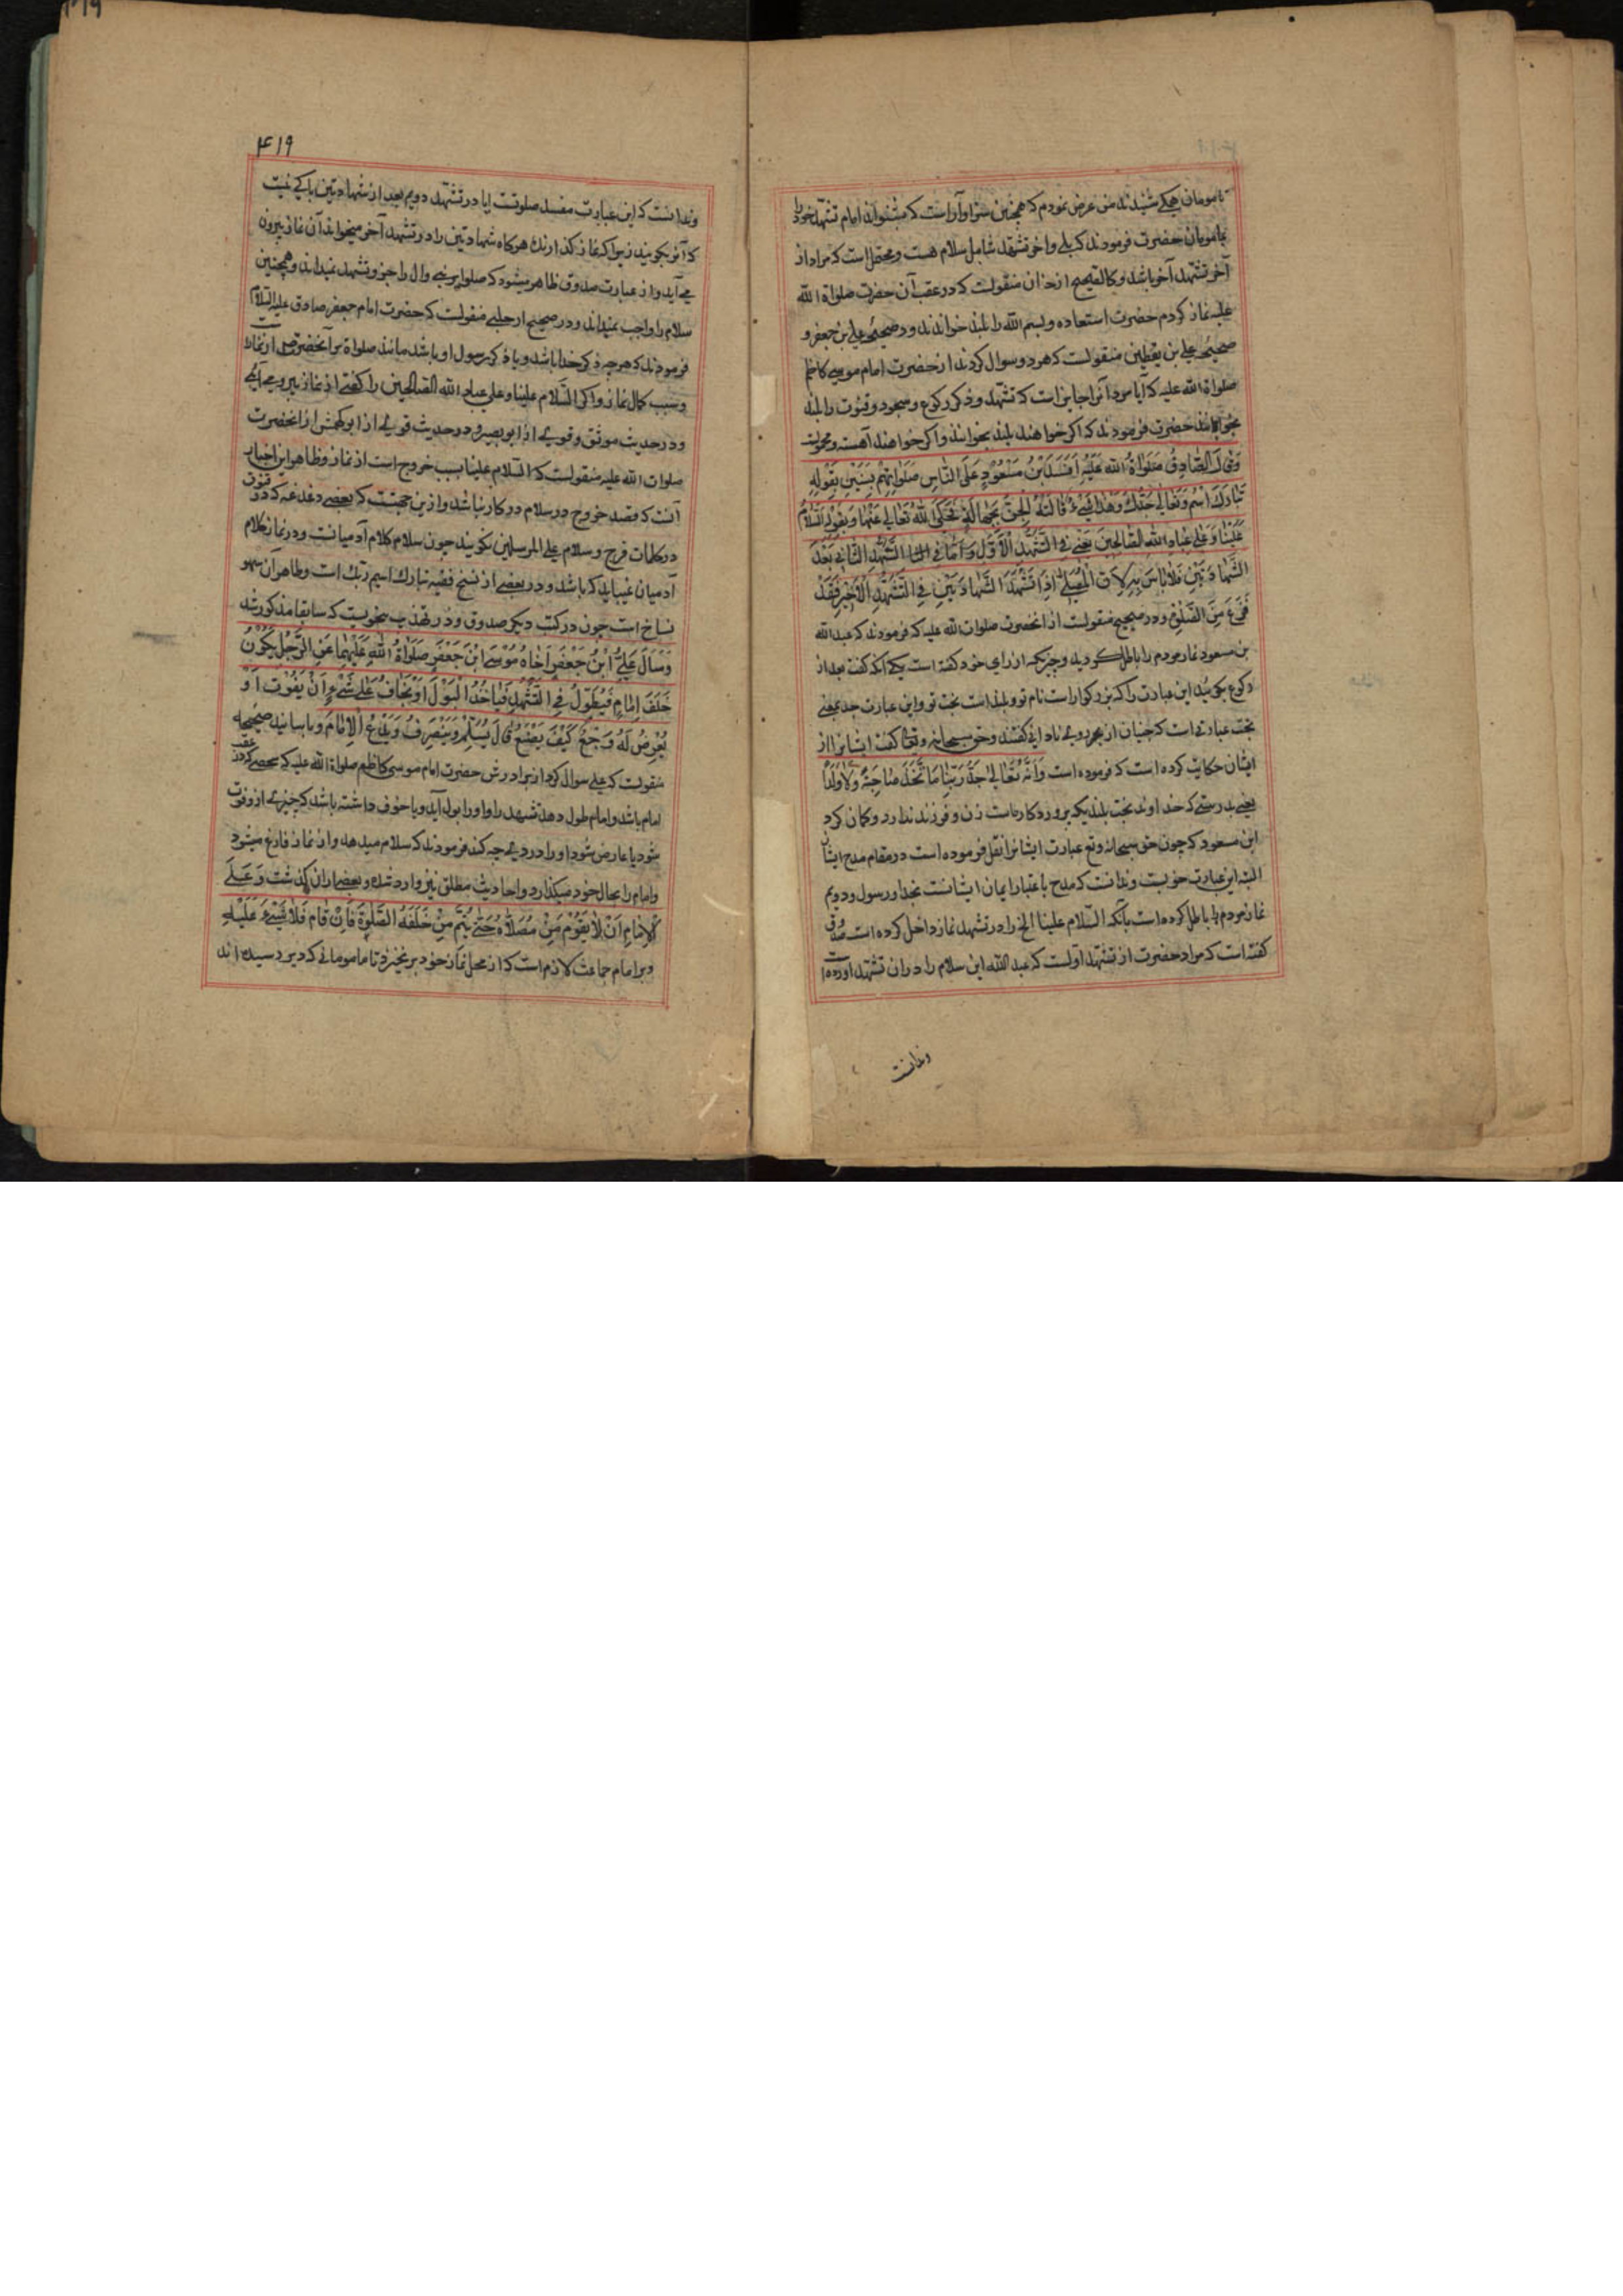 تا مومان همکی شنیدند من عرض نمودم که همچنین سزاوار است که بشنواند امام تشهد خود را
بمامومان حضرت فرمودند که بلی واخر تشهد شامل سلام هست ومحتمل است که مراد از
آخر تشهد آخر باشد وکالصحیح از منقولست که در عقب آن حضرت صلواة الله
علیه نماز کردم حضرت استعاده وبسم الله را بلند خواندند ودر صحیحه علی بن جعفر و
صحیحه علی بن یقطین منقولست که هر دو سوال کردند از حضرت امام موسی کاظم
صلواة الله علیه که آیا مرد آنرا جایز است که تشهد وذکر رکوع وسجود وقنوت را بلند
بخواند حضرت فرمودند که اکر خواهند بلند بخوانند واکر خواهند آهسته
وَقَالَ الصَّادِقُ صَلَوَاةُ الله عَلَیْهِ اَفْسَدَ ابْنُ مَسْعُوْدٍ عَلَی النَّاسِ صَلَوَاتِهِمْ بِشَیْئَیْنِ بِقَوْلِهِ
تَبَارَكَ اسْمُ وَتَعَالٰی جَدُّكَ وَهٰذَا شَیْءٌ قَالَتْهُ الْجِنُّ بِجَهَالَةٍ فَحَکَی اللهُ تَعَالٰی عَنْهَا وَبِقَوْلِهِ السَّلَامُ
عَلَیْنَا وَعَلٰی عِبَادِ اللهِ الصَّالِحِیْنَ یَعْنِی فِی التَّشَهُّدِ الْاَوَّلِ وَاَمَّا فِی التَّشَهُّدِ الثَّانِی بَعْدَ
الشَّهَادَتَیْنِ فَلَا بَاْسَ بِهِ لِاَنَّ الْمُصَلِّی اِذَا تَشَهَّدَ الشَّهَادَتَیْنِ فِی التَّشَهُّدِ الْاَخِیْرِ فَقَدْ
فَرَغَ مِنَ الصَّلٰوةِ ودر صحیح منقولست از انحضرت صلوات الله علیه که فرمودند که عبد الله
بن مسعود نماز مردم را باطل کردبدو چیز که از رای خود کفته است یکی آنکه کفت بعد از
رکوع بکویند این عبارت را که بزرکوار است نام تو وبلند است بخت تو واین عبارت جد بمعنی
بخت عبارتی است که جنیان از روی نادانی کفتند وحق سبحانه وتعالی کفت ایشانرا از
ایشان حکایت کرده است که فرموده است وَاَنَّهُ تَعَالٰی جَدُّ رَبِّنَا مَا اتَّخَذَ صَاحِبَةً وَلَا وَلَدًا
یعنی بدرستی که خداوند بخت بلند یکه پروردکار ماست زن وفرزند ندارد وکمان کرد
ابن مسعود که چون حق سبحانه وتع عبارت ایشانرا نقل فرموده است در مقام مدح ایشان
البته این عبارت خوبست وندانست که مدح باعتبار ایمان ایشانست بخدا ورسول ودویم
نماز مردم را باطل کرده است بآنکه السلام علینا الخ را در تشهد نماز داخل کرده است صدوق
کفته است که مراد حضرت از تشهد اولست که عبد الله این سلام را دران تشهد اورده است
وندانست
۴۱۹
وندانست که این عبارت مفسد صلوتست اما در تشهد دویم بعد از شهادتین باکی نیست
که آنرا بکویند زیرا که نماز کذارنده هرکاه شهادتین را در تشهد آخر میخواند آن نماز بیرون
می آید واز عبارت صدوق ظاهر میشود که صلوات بر نبی وال را جزو تشهد نمیداند وهمچنین
سلام را واجب نمیداند ودر صحیح از حلبی منقولست که حضرت امام جعفر صادق علیه السلام
فرمودند که هر چه ذکر خدا باشد ویا ذکر رسول او باشد مانند صلواة بر آنحضرت از نماز است
وسبب کمال نماز واکر السَّلام علینا وعلی عباد الله الصالحین را کفتی از نماز بیرون می آیی
ودر حدیث موثق وقوی از ابو بصیر ودر حدیث قوی از ابو کهمش از انحضرت
صلوات الله علیه منقولست که السَّلام علینا سبب خروج است از نماز وظاهر این اخبار
آنست که قصد خروج در سلام درکار نباشد وازین جهتست که بعضی دغدغه کرده در قنوت
در کلمات فرج وسلام علی المرسلین نکویند چون سلام کلام آدمیانست ودر نماز کلام
آدمیان نمیباید که باشد ودر بعضی از نسخ فقیه تبارك اسم ربك است وظاهر آن سهو
نساخ است چون در کتب دیکر صدوق ودر تهذیب بنحویست که سابقا مذکور شد
وَسَاَلَ عَلِیُّ ابْنُ جَعْفَرٍ اَخَاهُ مُوْسٰی ابْنَ جَعْفَرٍ صَلَوَاةُ اللهِ عَلَیْهِمَا عَنِ الرَّجُلِ یَکُوْنُ
خَلْفَ اِمَامٍ فَیُطَوِّلُ فِی التَّشَهُّدِ فَیَاْخُذُهُ الْبَوْلُ اَوْ یَخَافُ عَلٰی شَیْءٍ اَنْ یَفُوْتَ اَوْ
یُعْرِضُ لَهُ وَجَعٌ کَیْفَ یَصْنَعُ قَالَ یُسَلِّمُ وَیَنْصَرِفُ وَیَدَعُ الْاِمَامَ وباسانید صحیحه
منقولست که علی سوال کرد از برادرش حضرت امام موسی کاظم صلواة الله علیه که شخصی که در عقب
امام باشد وامام طول دهد تشهد را واورا بول آید ویا خوف داشته باشد که چیزی ازو فوت
شود یا عارض شود اورا دردی چه کند فرمودند که سلام میدهد واز نماز فارغ میشود
وامام را بحال خود میکذارد واحادیث مطلق نیز وارد شده وبعضی ازان کذشت وَعَلَی
الْاِمَامِ اَنْ لَا یَقُوْمَ مِنْ مُصَلَّاهُ حَتّٰی یُتِمَّ مَنْ خَلْفَهُ الصَّلٰوةَ فَاِنْ قَامَ فَلَا شَیْءَ عَلَیْهِ
وبر امام جماعت لازم است که از محل نماز خود بر نخیزد تا مامومانی که دیر رسیده اند